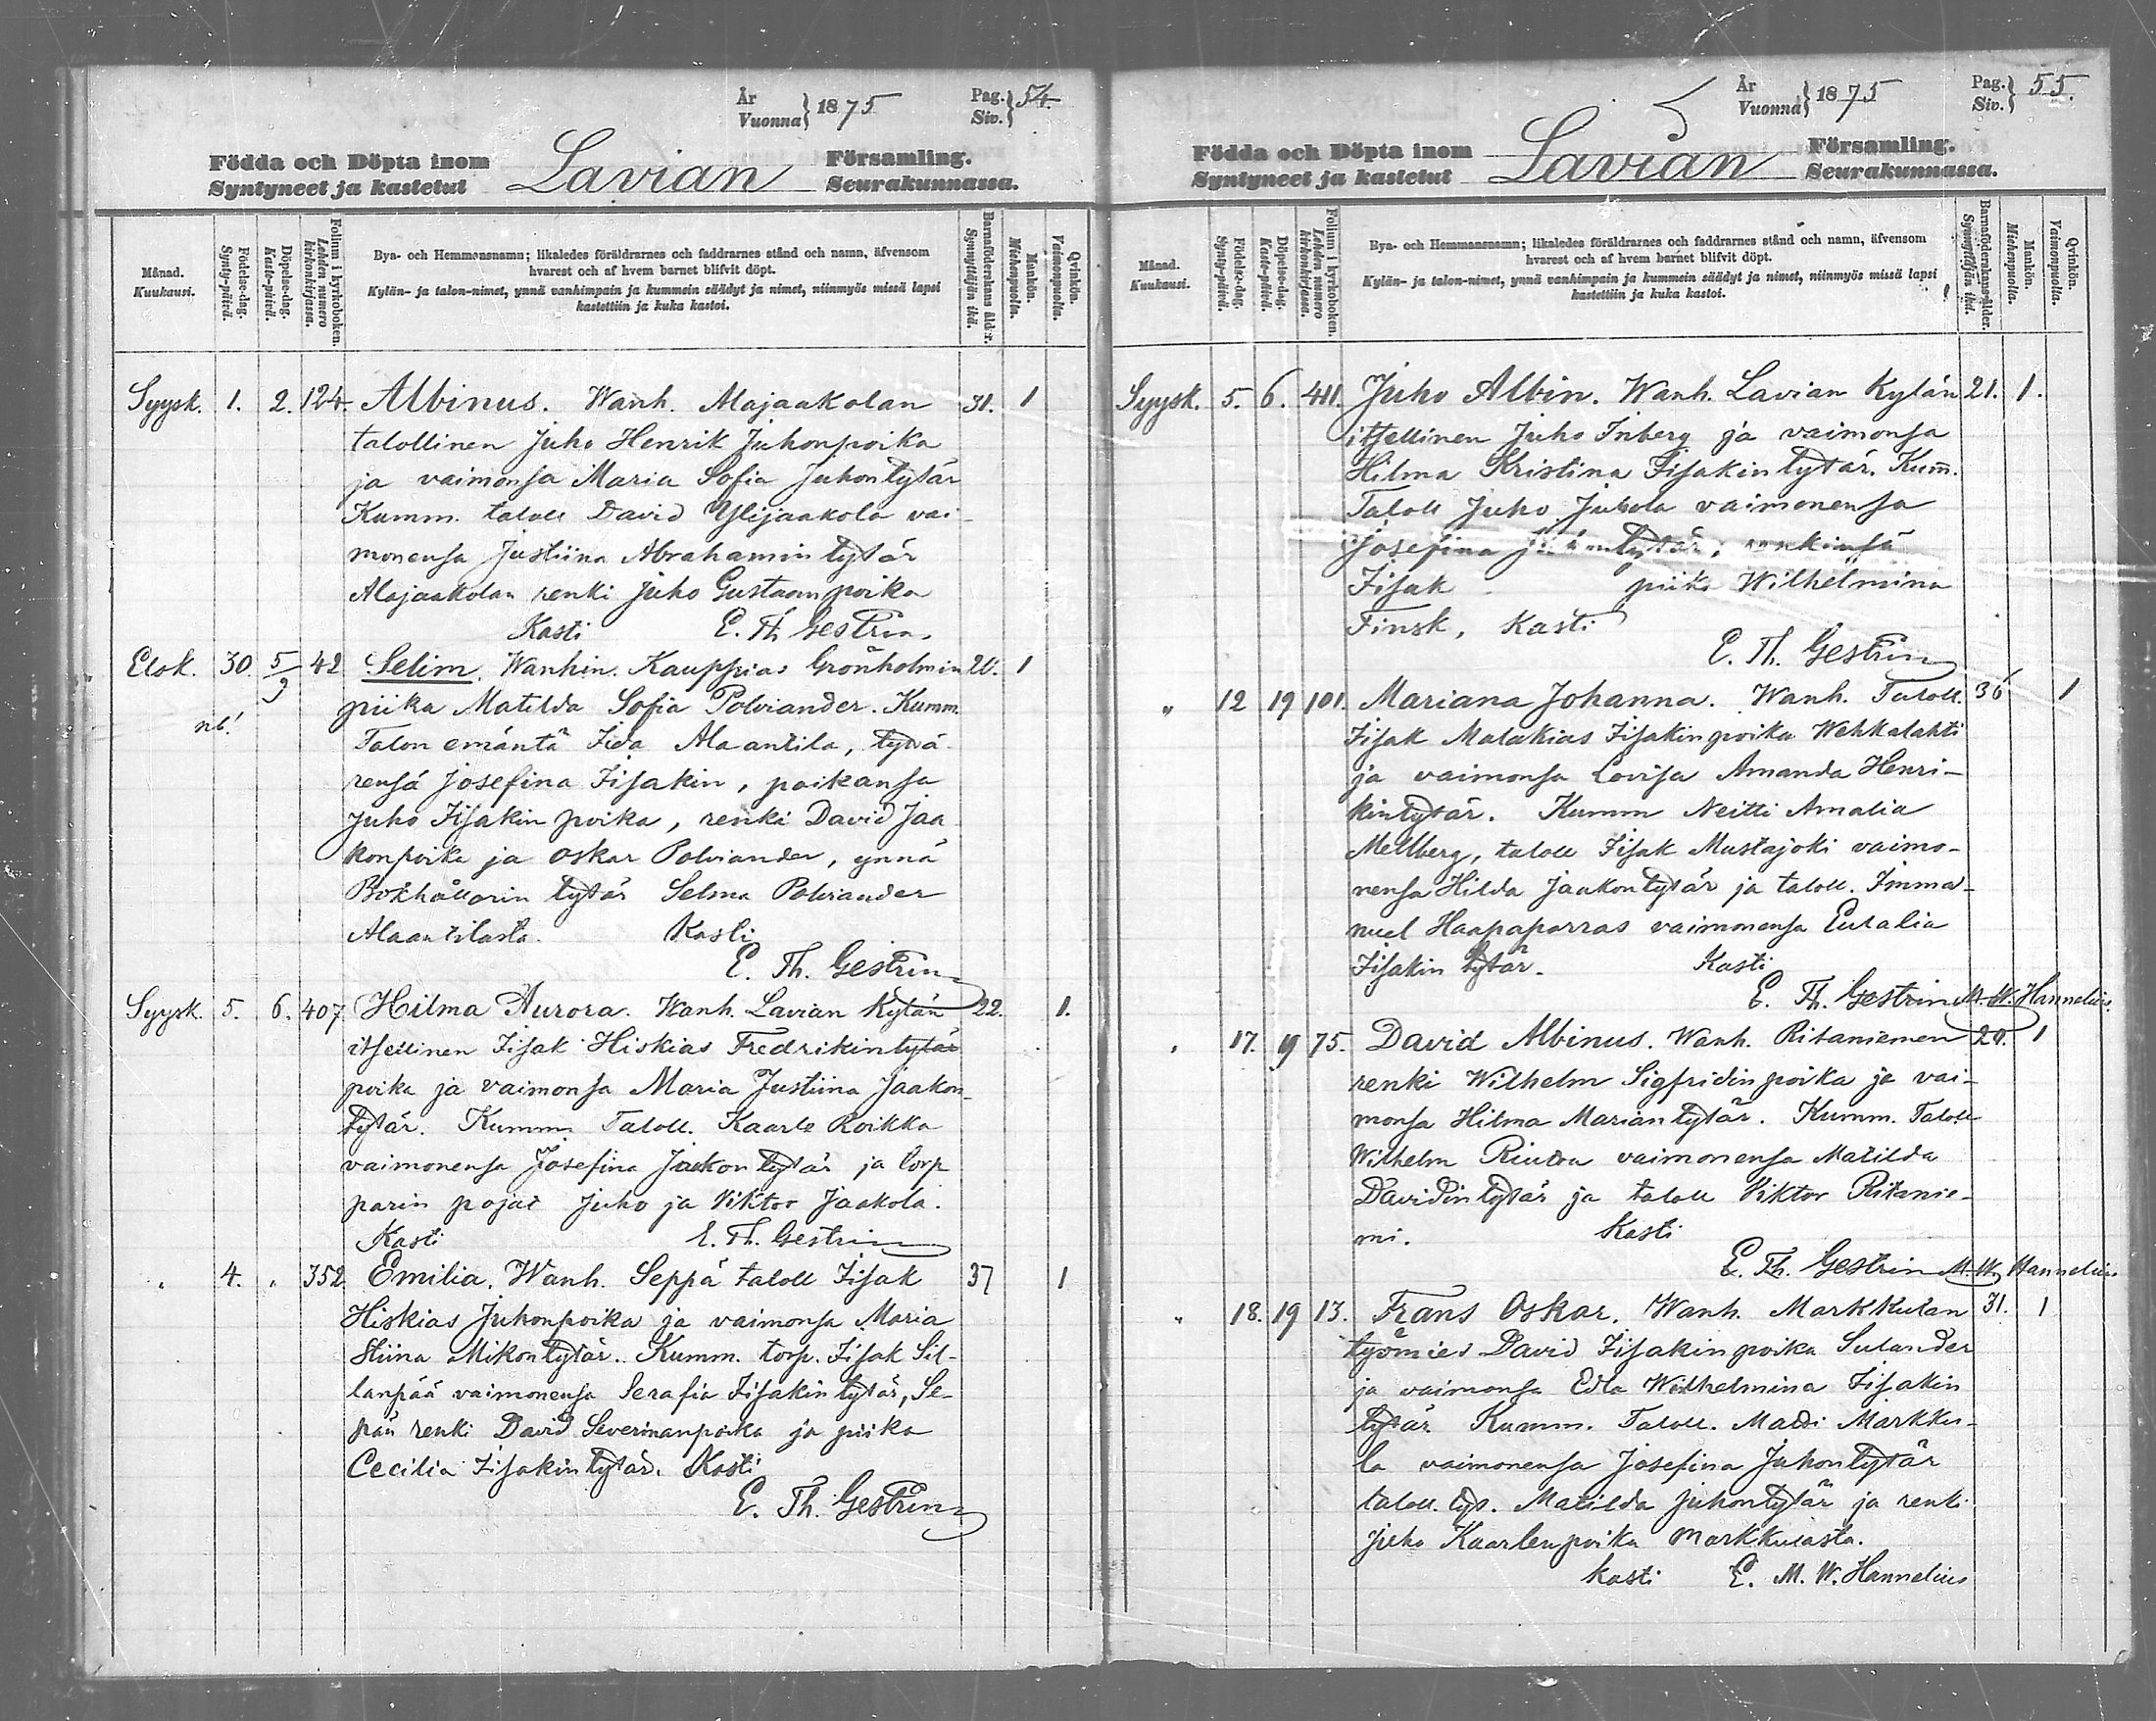 År
Vuonna } 1875
Pag.
Siv. } 54.
Födda och Döpta inom
Syntyneet ja kastetut
Lavian
Församling.
Seurakunnassa.
Månad.
Kuukausi.
Födelse-dag.
Synty-päivä.
Döpelse-dag.
Kaste-päivä.
Folium i kyrkoboken.
Lehden numero kirkonkirjassa.
Bya- och Hemmansnamn; likaledes föräldrarnes och faddrarnes stånd och namn, äfvensom
hvarest och af hvem barnet blifvit döpt.
Kylän- ja talon-nimet, ynnä vanhimpain ja kummein säädyt ja nimet, niinmyös missä lapsi
kastettiin ja kuka kastoi.
Barnaföderskans ålder.
Synnyttäjän ikä.
Mankön.
Miehenpuolia.
Qvinkön.
Vaimonpuolia.
Syysk. 1. 2. 124. Albinus. Wanh. Alajaakolan 31. 1
talollinen Juho Henrik Juhonpoika
ja vaimonsa Maria Sofia Juhontytär
Kumm. taloll David Ylijaakola vai-
monensa Justiina Abrahamintytär
Alajaakolan renki Juho Gustaanpoika
Kasti E. Th Gestrin.
Elok. 30. 5/9 42 Selim. Wanhin. Kauppias Grönholmin 20. 1
nb!
piika Matilda Sofia Polviander. Kumm.
Talon emäntä Iida Alaantila, tyttä-
rensä Josefina Iisakin, poikansa
Juho Iisakin poika, renki David Jaa
konpoika ja Oskar Polviander, ynnä
Bokhållarin tytär Selma Polviander
Alaantilasta. Kasti
E. Th. Gestrin
Syysk. 5. 6. 407 Hilma Aurora. Wanh. Lavian Kylän 22. 1.
itsellinen Iisak Hiskias Fredrikintytär
poika ja vaimonsa Maria Justiina Jaakon-
tytär. Kumm. Taloll. Kaarle Roikka
vaimonensa Josefina Jaakontytär ja torp
parin pojat Juho ja Viktor Jaakola.
Kasti E. Th. Gestrin
" 4. " 352 Emilia. Wanh. Seppä taloll Iisak 37 1
Hiskias Juhonpoika ja vaimonsa Maria
Stiina Mikontytär. Kumm. torp. Iisak Sil-
lanpää vaimonensa Serafia Iisakintytär, Se-
pän renki David Severinanpoika ja piika
Cecilia Iisakintytär. Kasti
E. Th. Gestrin
År
Vuonna } 1875
Pag.
Siv. } 55.
Födda och Döpta inom
Syntyneet ja kastetut
Lavian
Församling.
Seurakunnassa.
Månad.
Kuukausi.
Födelse-dag.
Synty-päivä.
Döpelse-dag.
Kaste-päivä.
Folium i kyrkoboken.
Lehden numero kirkonkirjassa.
Bya- och Hemmansnamn; likaledes föräldrarnes och faddrarnes stånd och namn, äfvensom
hvarest och af hvem barnet blifvit döpt.
Kylän- ja talon-nimet, ynnä vanhimpain ja kummein säädyt ja nimet, niinmyös missä lapsi
kastettiin ja kuka kastoi.
Barnaföderskans-ålder.
Synnyttäjän ikä.
Mankön.
Miehenpuolia.
Qvinkön.
Vaimonpuolia.
Syysk. 5. 6. 411. Juho Albin. Wanh. Lavian Kylän 21. 1.
itsellinen Juho Inberg ja vaimonsa
Hilma Kristina Iisakintytär. Kumm.
Taloll Juho Jubola vaimonensa
Josefina tytär, renkinsä
Iisak piika Wilhelmina
Finsk, Kasti
E. Th. Gestrin
" 12 19 101. Mariana Johanna. Wanh. Taloll. 36 1
Iisak Malakias Iisakinpoika Wehkalahti
ja vaimonsa Lovisa Amanda Henri-
kintytär. Kumm Neitti Amalia
Mellberg, taloll Iisak Mustajoki vaimo-
nensa Hilda Jaakontytär ja taloll. Imma-
nuel Haapaparras vaimonensa Eutalia
Iisakin tytär. Kasti
E. Th. Gestrin M. W. Hannelius.
" 17. 19 75. David Albinus. Wanh. Ritaniemen 20. 1
renki Wilhelm Sigfridinpoika ja vai-
monsa Hilma Mariantytär. Kumm. Taloll
Wilhelm vaimonensa Matilda
Davidintytär ja taloll Viktor Ritanie-
mi. Kasti
E. Th. Gestrin M. W. Hannelius
" 18. 19 13. Frans Oskar. Wanh. Markkulan 31. 1
työmies David Iisakinpoika Sulander
ja vaimonsa Edla Wilhelmina Iisakin
tytär Kumm. Taloll. Matti Markku-
la vaimonensa Josefina Juhontytär
taloll. tyt. Matilda Juhontytär ja renki
Juho Kaarlenpoika Markkulasta.
Kasti E. M. W. Hannelius